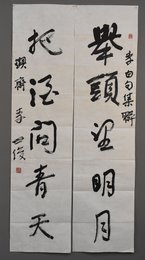 李白句集聯
舉頭望明月
把酒問青天